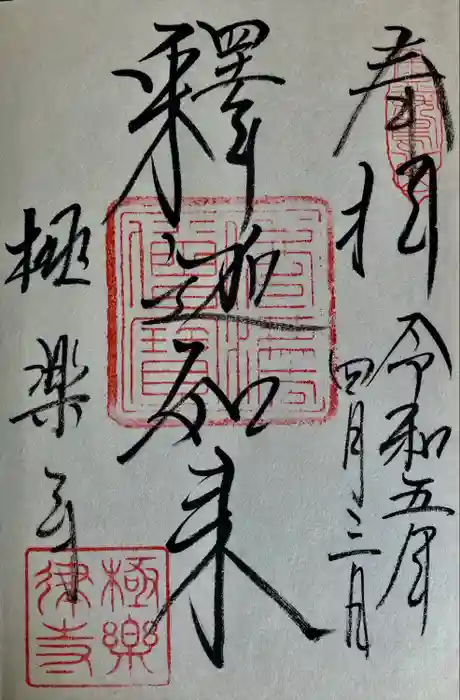 奉拝
令和五年
四月三日
釋迦如来
極楽寺
極樂
律寺